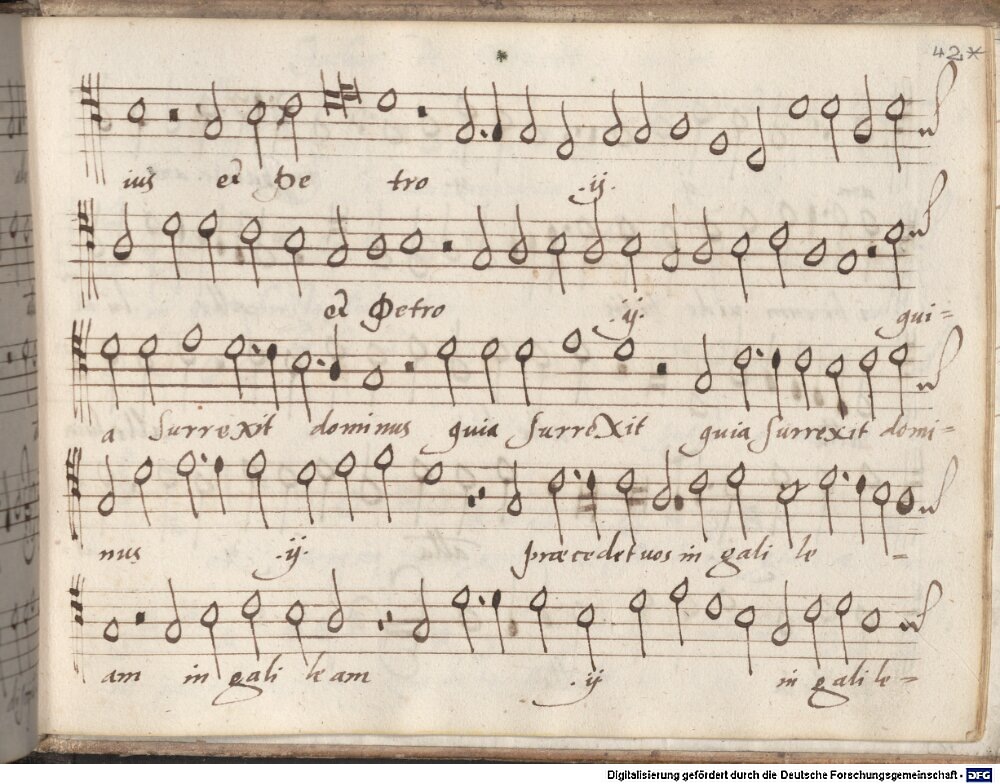 42*
ius et Pe tro .ij.
et Petro .ij. qui=
a surrexit dominus quia surrexit quia surrexit domi=
nus .ij. præcedet vos in gali le -
am in gali le am .ij in gali le=
Digitalisierung gefördert durch die Deutsche Forschungsgemeinschaft - DFG